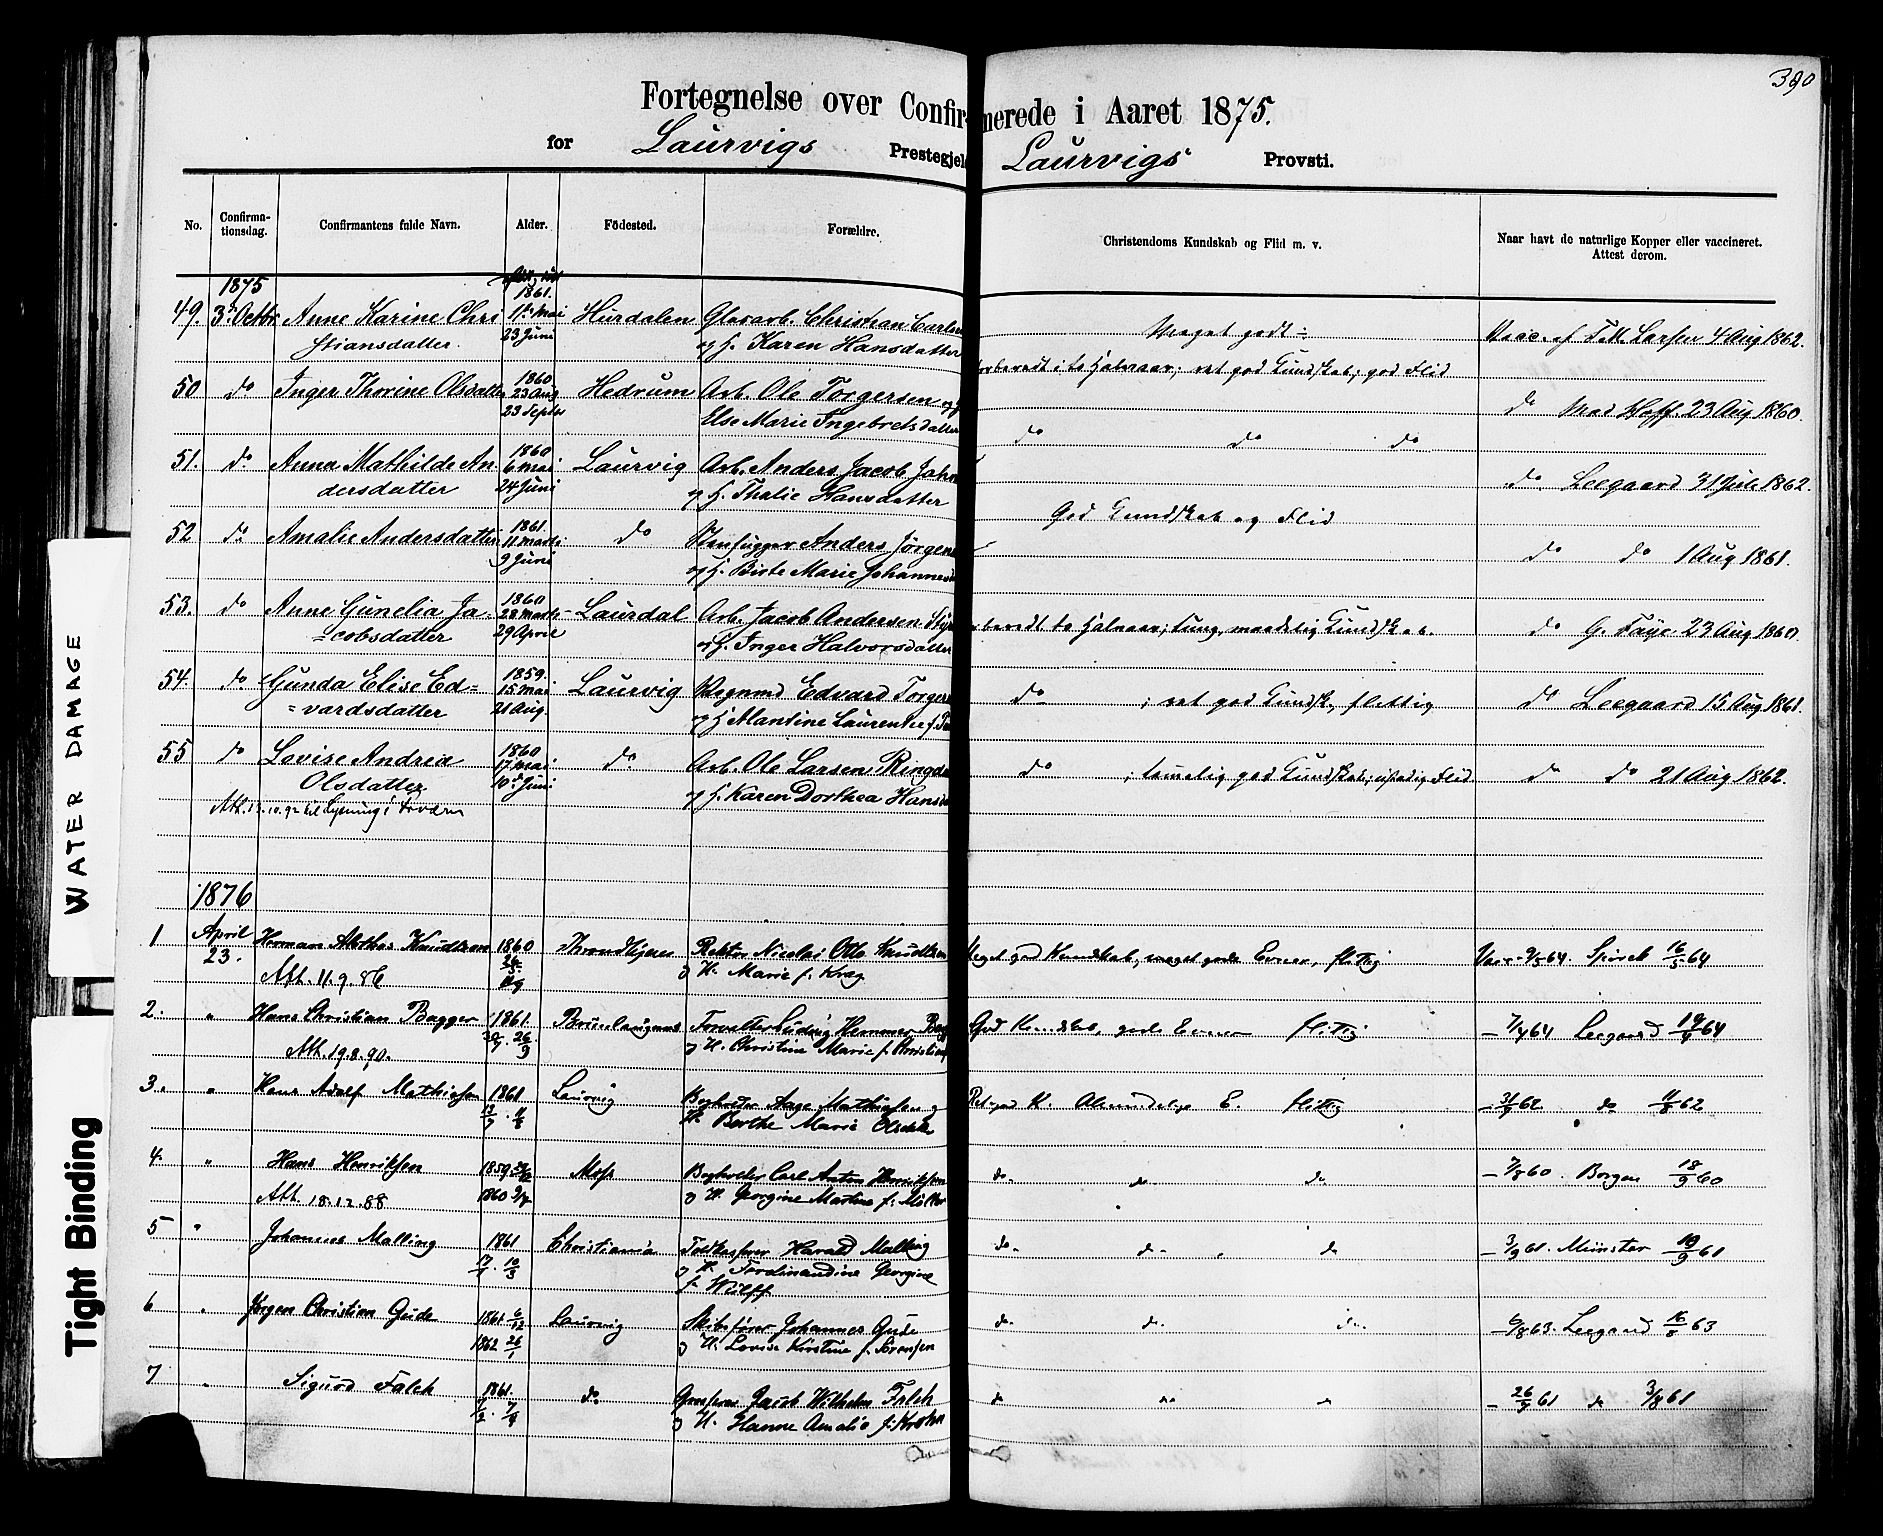 390
Fortegnelse over Confirmerede i Aaret 1875.
for Laurvigs Prestegjeld Laurvigs Provsti.
No. Confirma-tionsdag. Confirmantens fulde Navn. Alder. Födested. Forældre. Christendoms Kundskab og Flid m. v. Naar havt de naturlige Kopper eller vaccineret. Attest derom.
1875
1861.
49. 3die Octbr Anne Karine Chri 11te Mai Hurdalen Glasarb. Christian Carlsen Meget godt Vacc. af Larsen 4 Aug 1862.
stiansdatter. 23 Juni og H. Karen Hansdatter
1860
50 do Inger Thorine Olsdatter 23 Aug Hedrum Arb. Ole Torgersen og H. ret god Kundskab, god Flid do Mad Hoff 23 Aug 1860.
23 Septbr Else Marie Ingebretsdatter
1860
51. do Anna Mathilde An 6 Mai Laurvig Arb. Anders Jacob Joh do do do do Leegaard 31 Juli 1862.
dersdatter 24 Juni og H. Thalie Hansdatter
1861.
52 do Amalie Andersdatter 11 Marts do Anders Jörgens God Kundskab og Flid do do 1 Aug 1861.
9 Juni og H. Birte Marie Johannesd
1860
53. do Anne Gunelia Ja- 28 Marts Laurdal Arb. Jacob Andersen tung, maadelig Kundskab. do G. Faye 23 Aug 1860.
cobsdatter 29 April og H. Inger Halvorsdatter
1859.
54. do Gunda Elise Ed= 15 Mai Laurvig Edvard Torgers do ; ret god Kundsk., flittig do Leegaard 15 Aug 1861.
=vardsdatter 21 Aug. og H. Mantine Laurentse f.
1860
55 do Lovise Andrea 17 Mai do Arb. Ole Larsen Ringda do ; temelig god Kundskab; Flid do do 21 Aug 1862.
Olsdatter 10 Juni og H. Karen Dorthea Hansd
Att. til Lysning i
1876
1 April 23. Herman Knudtzon 1860 Trondhjem Rektor Nicolai Otto Knudtzon Meget god Kundskab, meget gode Evner, flittig Vacc. 9/5 64. 16/5 64
Att. 11.9.86 og H. Marie f. Krag
2. " Hans Christian Bagger 1861. Brunlaugnes Forvalter Ludvig Hemmer Bagg God Kundskab, gode Evner flittig – 7/4 64 Leegaard 19/4 64
Att. 19.8.90. og H. Christine Marie f. Christian
3. " Hans Adolf Mathiesen 1861 Laurvig Bogholder Aage Mathiesen og Ret god K. Almindelige E. flittig – 62 do 11/8 62
H. Berthe Marie Olsdatter
4. " Hans Henriksen 1859 Moss Bogholder Carl Anton Henriksen do. do. do – 7/8 60. Borgen 18/9 60
Att. 18.12.88 1860 og H. Georgine Martine f. Möller
5 " Johannes Malling 1861 Christiania Harald Malling do. do. do – 3/9 61. Münster 19/9 61
17/1. 10/3 og H. Ferdinandine Georgine
f. Wulff
6 " Jörgen Christian Gude 1861 6/12 Laurvig Skibsförer Johannes Gude do. do. do. – 6/8 63. Leegaard 16/8 63
1862 26/1 og H. Lovise Kirstine f. Sörensen
7 " Sigurd Falck 1861. do. Jacob Wilhelm Falck do do do – 61 do 3/8 61
og H. Hanne Amalie f. Krohn
WATER DAMAGE
Tight Binding